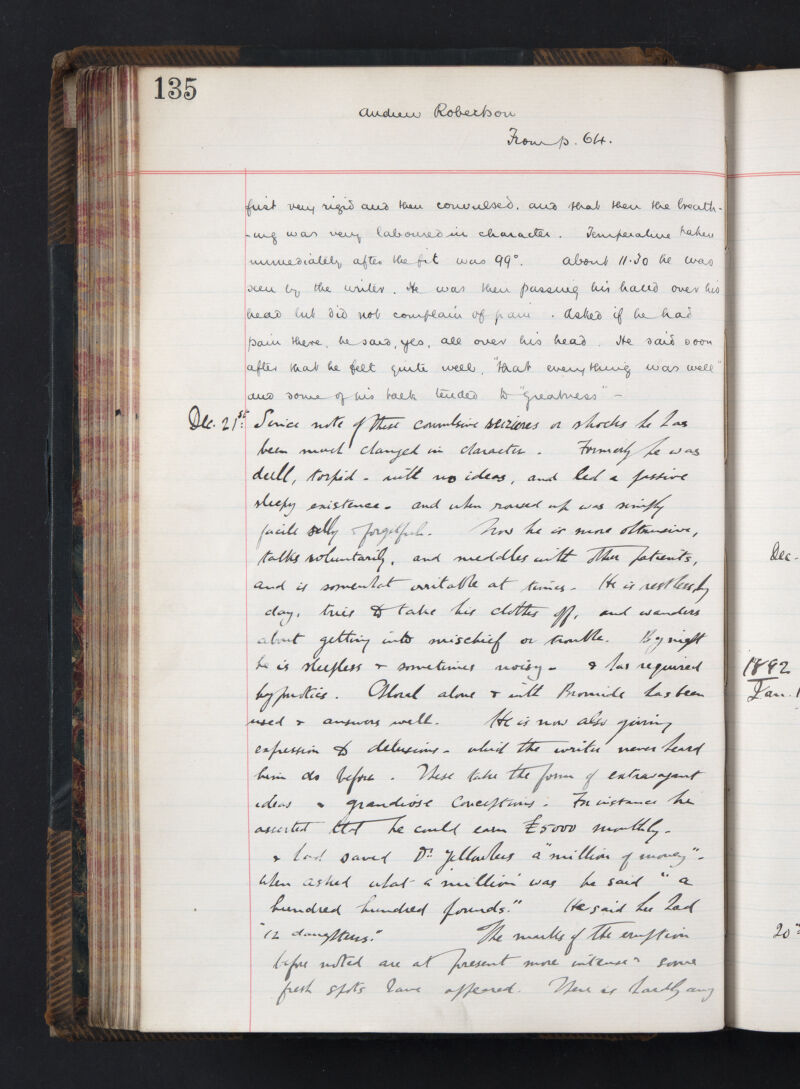 135
Andrew Robertson
From p. 64.
first very rigid and then convulsed, and that then the breath-
-ing was very laboured in character. Temperature taken
immediately after the fit was 99°. About 11.30 he was
seen by the writer. He was then passing his hand over his
head but did not complain of pain. Asked if he had
pain there, he said, yes, all over his head. He said soon
after that he felt quite well, "that everything was well"
and some of his talk tended to "greatness" -
Dec. 21st. Since note of these convulsive seizures or shocks he has
been much changed in character. Formerly he was
dull, torpid - with no ideas, and led a passive
sleepy existence - and when roused up was simply
facile silly & forgetful. Now he is more obtrusive,
talks voluntarily, and meddles with other patients,
and is somewhat irritable at times. He is restless by
day, tries to take his clothes off, and wanders
about getting into mischief or trouble. By night
he is sleepless & sometimes noisy - & has required
hypnotics. Chloral alone & with Bromide has been
used & answers well. He is now also giving
expression to delusions - which the writer never heard
him do before. These take the form of extravagant
ideas & grandiose conceptions. For instance he
asserted that he could earn £5000 monthly -
& had saved Dr. Yellowlees a "million of money".
When asked what a million was he said "a
hundred hundred pounds." He said he had
"12 daughters." The marks of the eruption
before noted are at present more intense & some
fresh spots have appeared. There is hardly any
Dec.
1892
Jan. 1
20th